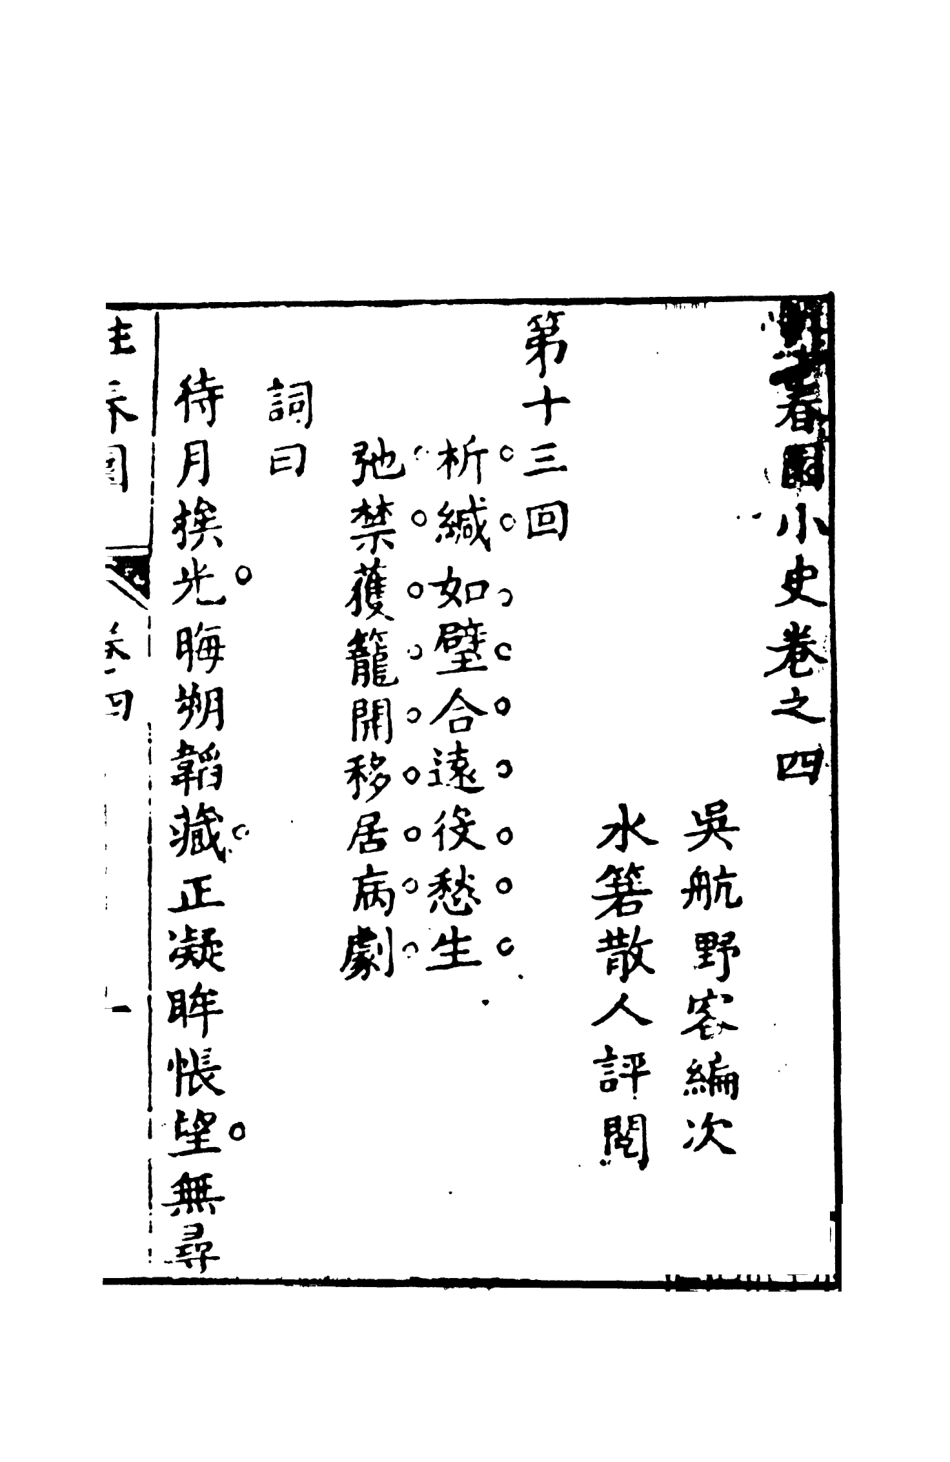 春園小史卷之四
吳航野客編次
水箬散人評閱
第十三回
析緘如璧合遠役愁生
弛禁獲籠開移居病劇
詞曰
待月挨光。晦朔韜藏。正凝眸悵望。無尋
春園
卷四
一